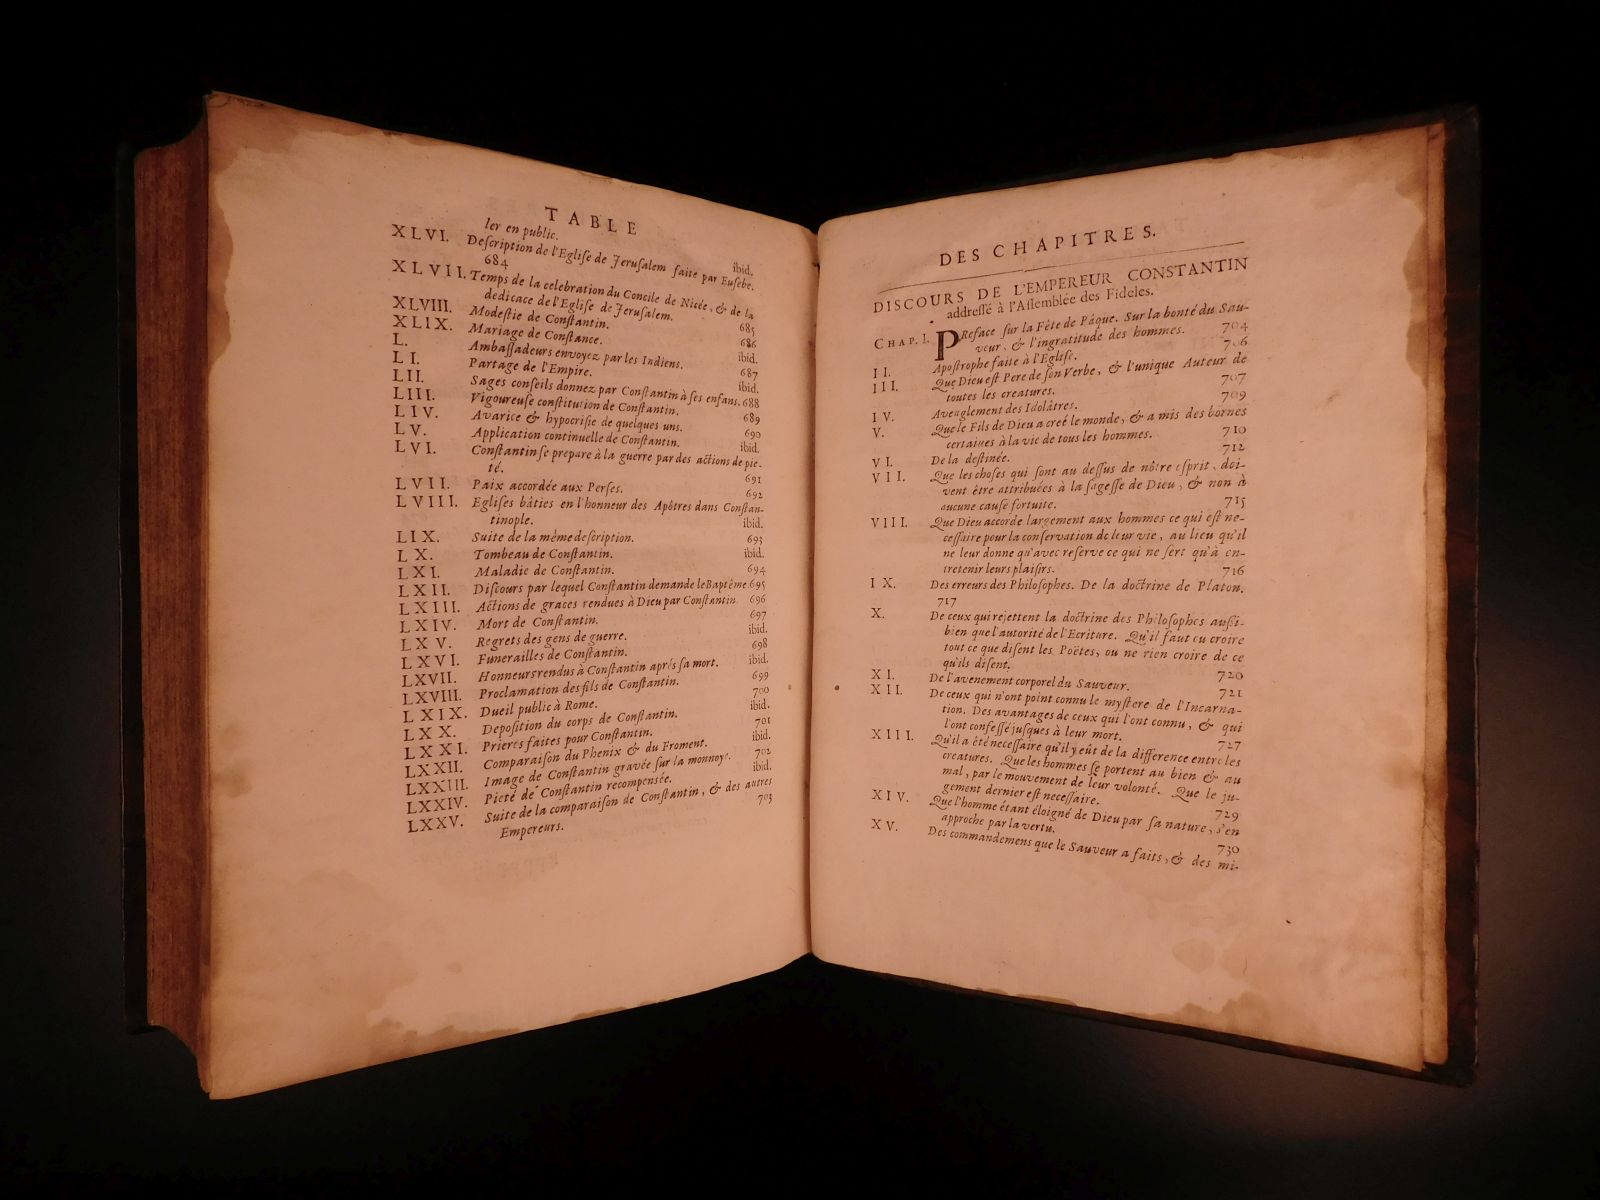 TABLE
ler en public. ibid.
XLVI. Deſcription de l'Egliſe de Jeruſalem faite par Euſebe.
684
XLVII. Temps de la celebration du Concile de Nicée, & de la
dedicace de l'Egliſe de Jeruſalem. 685
XLVIII. Modeſtie de Conſtantin. 686
XLIX. Mariage de Conſtance. ibid.
L. Ambaſſadeurs envoyez par les Indiens. 687
LI. Partage de l'Empire. ibid.
LII. Sages conſeils donnez par Conſtantin à ſes enfans. 688
LIII. Vigoureuſe conſtitution de Conſtantin. 689
LIV. Avarice & hypocriſie de quelques uns. 690
LV. Application continuelle de Conſtantin. ibid.
LVI. Conſtantin ſe prepare à la guerre par des actions de pie-
té. 691
LVII. Paix accordée aux Perſes. 692
LVIII. Egliſes bâties en l'honneur des Apôtres dans Conſtan-
tinople. ibid.
LIX. Suite de la mème deſcription. 693
LX. Tombeau de Conſtantin. ibid.
LXI. Maladie de Conſtantin. 694
LXII. Diſcours par lequel Conſtantin demande le Baptême. 695
LXIII. Actions de graces rendues à Dieu par Conſtantin. 696
LXIV. Mort de Conſtantin. 697
LXV. Regrets des gens de guerre. ibid.
LXVI. Funerailles de Conſtantin. 698
LXVII. Honneurs rendus à Conſtantin aprés ſa mort. ibid.
LXVIII. Proclamation des fils de Conſtantin. 699
LXIX. Dueil public à Rome. 700
LXX. Depoſition du corps de Conſtantin. ibid.
LXXI. Prieres faites pour Conſtantin. 701
LXXII. Comparaiſon du Phenix & du Froment. ibid.
LXXIII. Image de Conſtantin gravée ſur la monnoye. 702
LXXIV. Pieté de Conſtantin recompenſée. ibid.
LXXV. Suite de la comparaiſon de Conſtantin, & des autres
Empereurs. 703
DES CHAPITRES.
DISCOURS DE L'EMPEREUR CONSTANTIN
addreſſé à l'Aſſemblée des Fideles.
CHAP. I. PReface ſur la Fête de Pâque. Sur la bonté du Sau-
veur, & l'ingratitude des hommes. 704
II. Apoſtrophe faite à l'Egliſe. 706
III. Que Dieu eſt Pere de ſon Verbe, & l'unique Auteur de
toutes les creatures. 707
IV. Aveuglement des Idolâtres. 709
V. Que le Fils de Dieu a creé le monde, & a mis des bornes
certaines à la vie de tous les hommes. 710
VI. De la deſtinée. 712
VII. Que les choſes qui ſont au deſſus de nôtre eſprit, doi-
vent être attribuées à la ſageſſe de Dieu, & non à
aucune cauſe fortuite. 715
VIII. Que Dieu accorde largement aux hommes ce qui eſt ne-
ceſſaire pour la conſervation de leur vie, au lieu qu'il
ne leur donne qu'avec reſerve ce qui ne ſert qu'à en-
tretenir leurs plaiſirs. 716
IX. Des erreurs des Philoſophes. De la doctrine de Platon.
717
X. De ceux qui rejettent la doctrine des Philoſophes auſſi-
bien que l'autorité de l'Ecriture. Qu'il faut ou croire
tout ce que diſent les Poëtes, ou ne rien croire de ce
qu'ils diſent. 720
XI. De l'avenement corporel du Sauveur. 721
XII. De ceux qui n'ont point connu le myſtere de l'Incarna-
tion. Des avantages de ceux qui l'ont connu, & qui
l'ont confeſſé juſques à leur mort. 727
XIII. Qu'il a été neceſſaire qu'il y eût de la difference entre les
creatures. Que les hommes ſe portent au bien & au
mal, par le mouvement de leur volonté. Que le ju-
gement dernier eſt neceſſaire. 729
XIV. Que l'homme étant éloigné de Dieu par ſa nature, s'en
approche par la vertu. 730
XV. Des commandemens que le Sauveur a faits, & des mi-